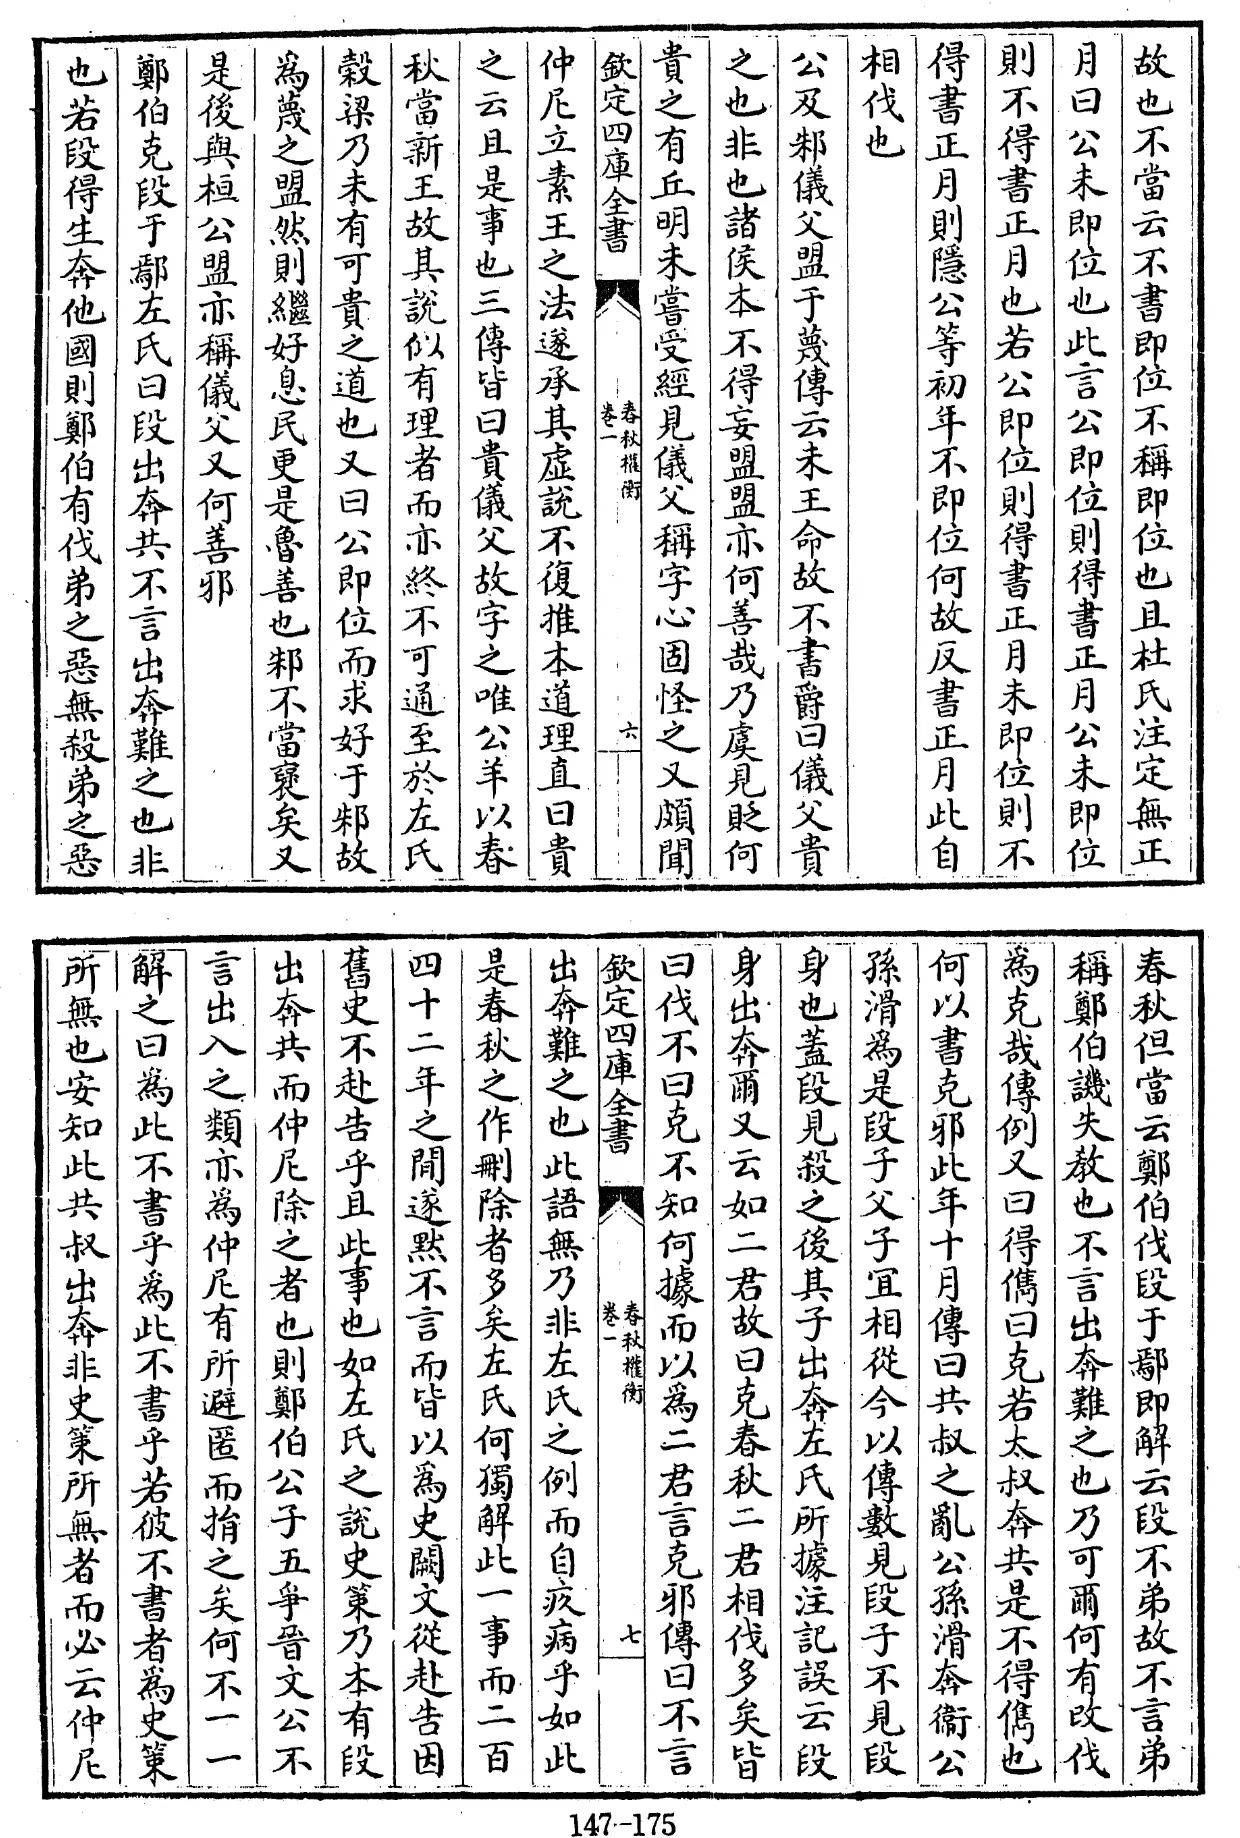 故也不當云不書即位不稱即位也且杜氏注定無正
月曰公未即位也此言公即位則得書正月公未即位
則不得書正月也若公即位則得書正月未即位則不
得書正月則隱公等初年不即位何故反書正月此自
相伐也
公及邾儀父盟于蔑傳云未王命故不書爵曰儀父貴
之也非也諸侯本不得妄盟盟亦何善哉乃虞見貶何
貴之有丘明未嘗受經見儀父稱字心固怪之又頗聞
欽定四庫全書
春秋權衡
卷一
六
仲尼立素王之法遂承其虛說不復推本道理直曰貴
之云且是事也三傳皆曰貴儀父故字之唯公羊以春
秋當新王故其說似有理者而亦終不可通至於左氏
穀梁乃未有可貴之道也又曰公即位而求好于邾故
為蔑之盟然則繼好息民更是魯善也邾不當褒矣又
是後與桓公盟亦稱儀父又何善邪
鄭伯克段于鄢左氏曰段出奔共不言出奔難之也非
也若段得生奔他國則鄭伯有伐弟之惡無殺弟之惡
春秋但當云鄭伯伐段于鄢即解云段不弟故不言弟
稱鄭伯譏失教也不言出奔難之也乃可爾何有改伐
為克哉傳例又曰得儁曰克若太叔奔共是不得儁也
何以書克邪此年十月傳曰共叔之亂公孫滑奔衞公
孫滑為是段子父子宜相從今以傳數見段子不見段
身也蓋段見殺之後其子出奔左氏所據注記誤云段
身出奔爾又云如二君故曰克春秋二君相伐多矣皆
曰伐不曰克不知何據而以為二君言克邪傳曰不言
欽定四庫全書
春秋權衡
卷一
七
出奔難之也此語無乃非左氏之例而自疚病乎如此
是春秋之作刪除者多矣左氏何獨解此一事而二百
四十二年之間遂默不言而皆以為史闕文從赴告因
舊史不赴告乎且此事也如左氏之說史策乃本有段
出奔共而仲尼除之者也則鄭伯公子五爭晉文公不
言出入之類亦為仲尼有所避匿而捐之矣何不一一
解之曰為此不書乎為此不書乎若彼不書者為史策
所無也安知此共叔出奔非史策所無者而必云仲尼
147-175